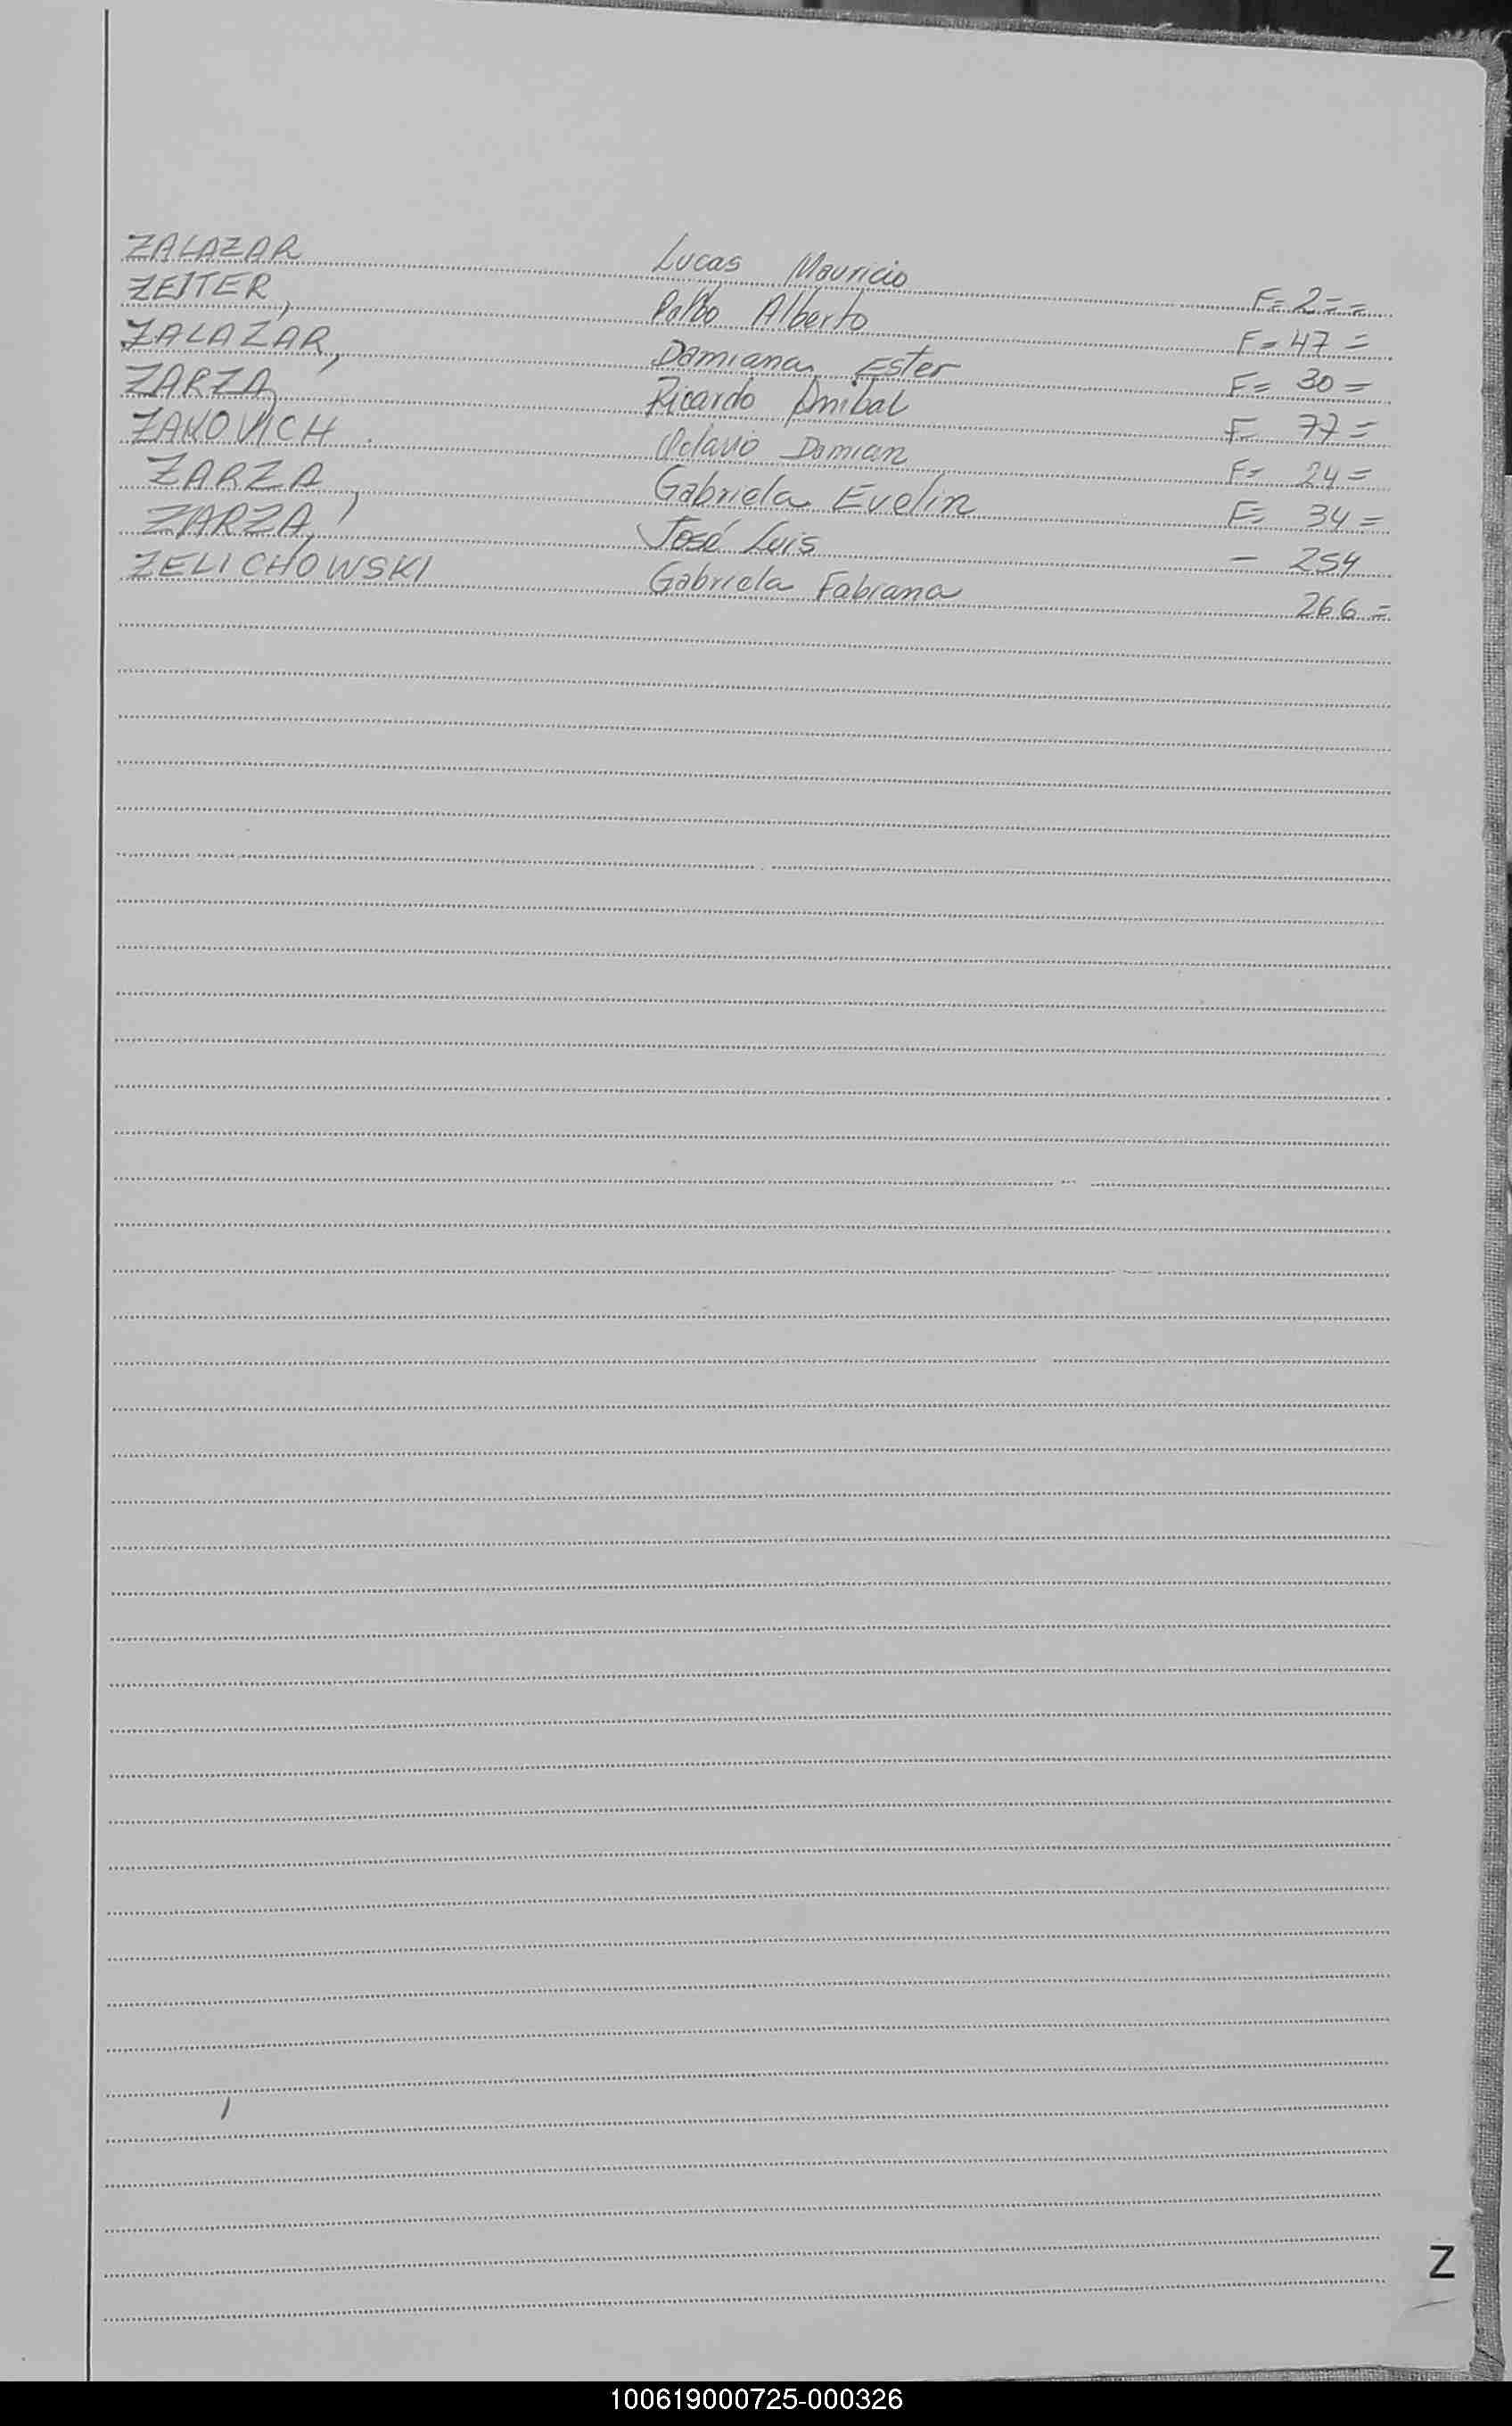 ZALAZAR Lucas Mauricio F= 2 = =
ZEITER, Alberto F= 47 =
ZALAZAR, Damiana Ester F= 30 =
ZARZA, Ricardo Anibal F 77 =
ZAKOVICH Octavio Damian F= 24 =
ZARZA, Gabriela Evelin F= 34 =
ZARZA, José Luis - 254
ZELICHOWSKI Gabriela Fabiana 266 =
Z
100619000725-000326